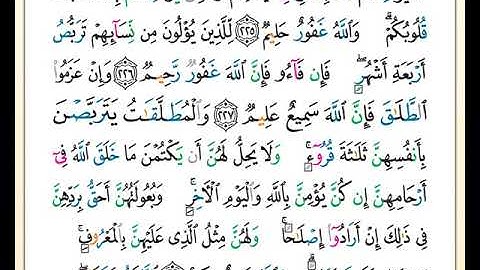 قُلُوبُكُمْ ۗ وَٱللَّهُ غَفُورٌ حَلِيمٌ ﴿٢٢٥﴾ لِّلَّذِينَ يُؤْلُونَ مِن نِّسَآئِهِمْ تَرَبُّصُ
أَرْبَعَةِ أَشْهُرٍ ۖ فَإِن فَآءُو فَإِنَّ ٱللَّهَ غَفُورٌ رَّحِيمٌ ﴿٢٢٦﴾ وَإِنْ عَزَمُوا۟
ٱلطَّلَـٰقَ فَإِنَّ ٱللَّهَ سَمِيعٌ عَلِيمٌ ﴿٢٢٧﴾ وَٱلْمُطَلَّقَـٰتُ يَتَرَبَّصْنَ
بِأَنفُسِهِنَّ ثَلَـٰثَةَ قُرُوٓءٍ ۚ وَلَا يَحِلُّ لَهُنَّ أَن يَكْتُمْنَ مَا خَلَقَ ٱللَّهُ فِىٓ
أَرْحَامِهِنَّ إِن كُنَّ يُؤْمِنَّ بِٱللَّهِ وَٱلْيَوْمِ ٱلْـَٔاخِرِ ۚ وَبُعُولَتُهُنَّ أَحَقُّ بِرَدِّهِنَّ
فِى ذَٰلِكَ إِنْ أَرَادُوٓا۟ إِصْلَـٰحًا ۚ وَلَهُنَّ مِثْلُ ٱلَّذِى عَلَيْهِنَّ بِٱلْمَعْرُوفِ ۚ